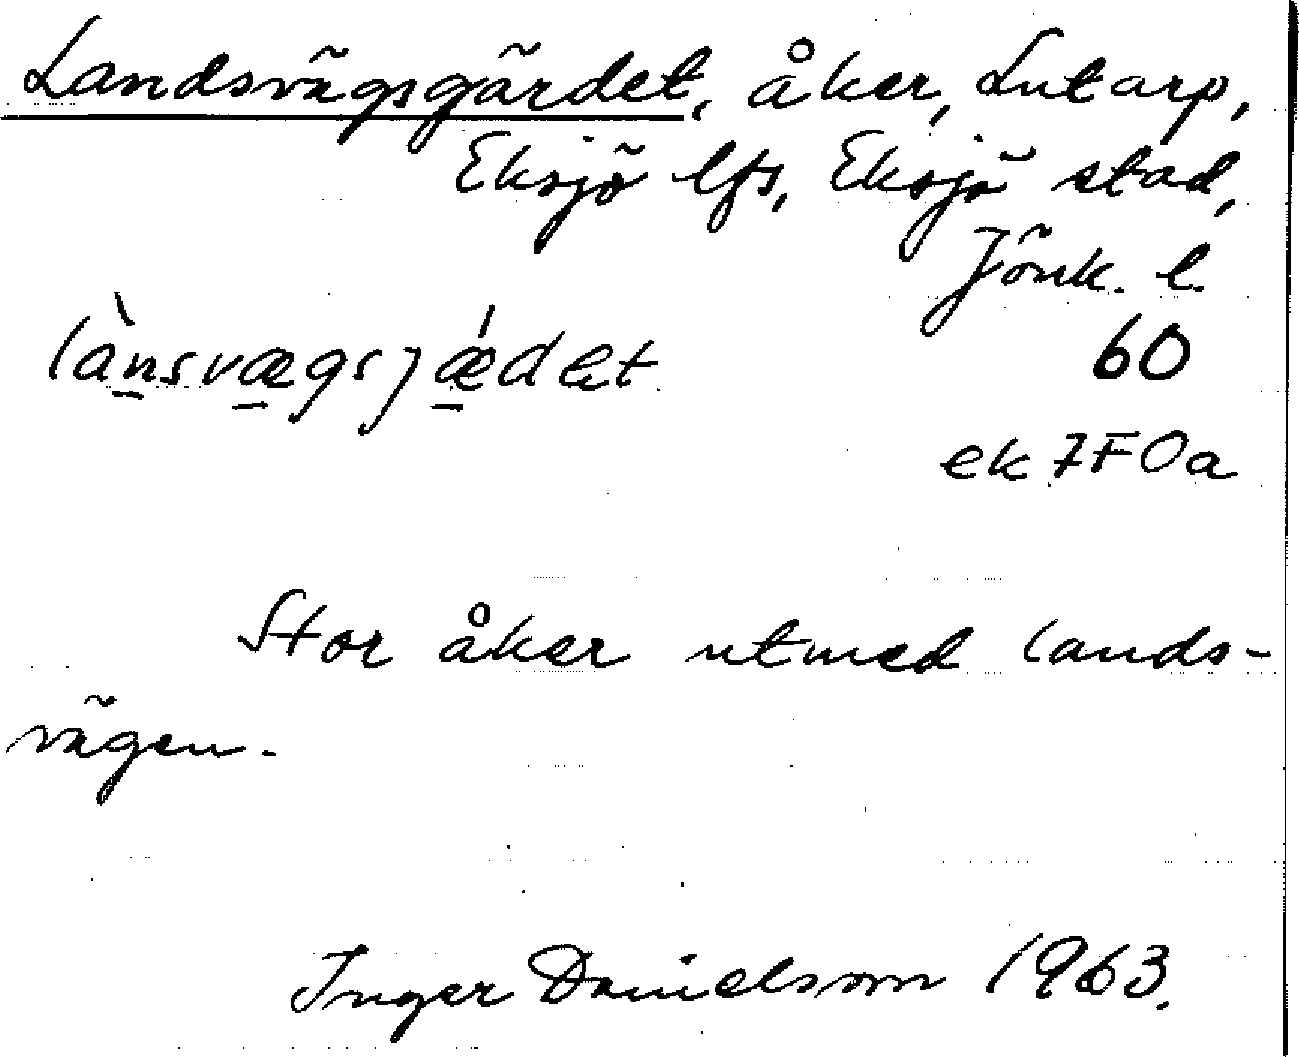 Landsvägsgärdet, åker, Lutarp,
Eksjö lfs, Eksjö stad,
Jönk. l.
lànsvægsjǽdet 60
ek 7F0a
Stor åker utmed lands-
vägen.
Inger Danielsson 1963.